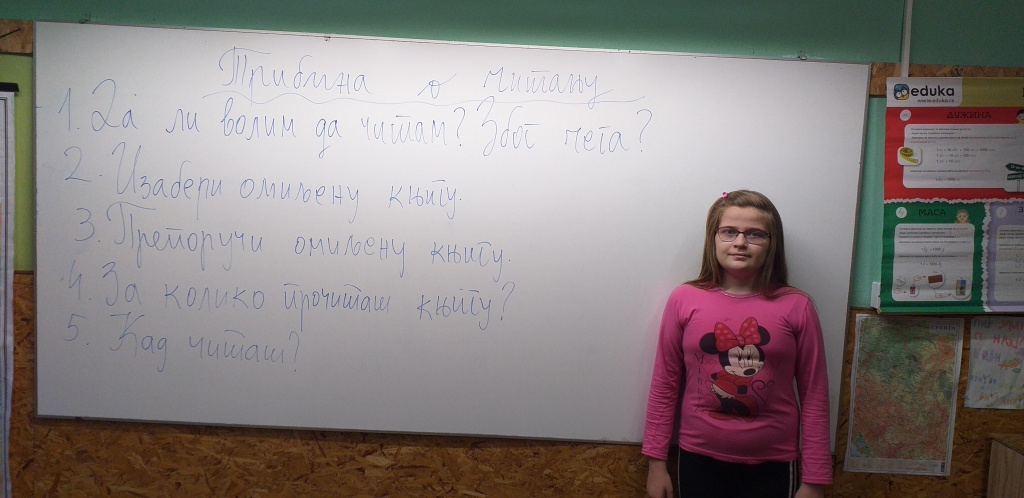 Трибина о читању
1. Да ли волим да читам? Због чега?
2. Изабери омиљену књигу.
3. Препоручи омиљену књигу.
4. За колико прочиташ књигу?
5. Кад читаш?
eduka
www.eduka.rs
ДУЖИНА
МАСА